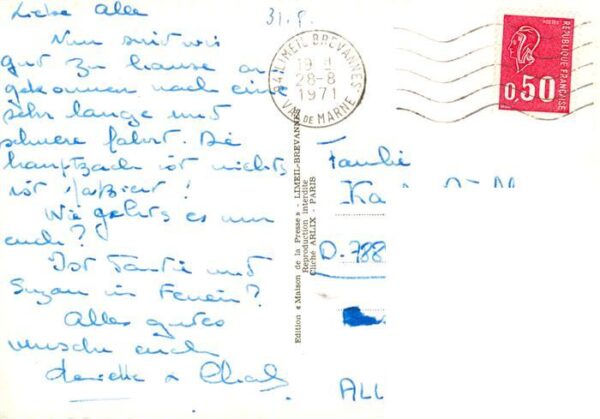 Liebe Alle
31.8.
Nun sind wir
gut zu hause an
gekommen nach eine
sehr lange und
schwere fahrt. Die
hauptzach ist nichts
ist passiert!
Wie gehts es nun
euch?
Ist Tantie und
Suzan in Ferien?
Alles gutes
wunscht euch
94 LIMEIL-BREVANNES
28-8
1971
VAL DE MARNE
POSTES
RÉPUBLIQUE FRANÇAISE
0,50
Edition « Maison de la Presse » - LIMEIL-BREVANNES
Reproduction interdite
Cliché ARLIX - PARIS
Familie
Ka
D. 788
ALL